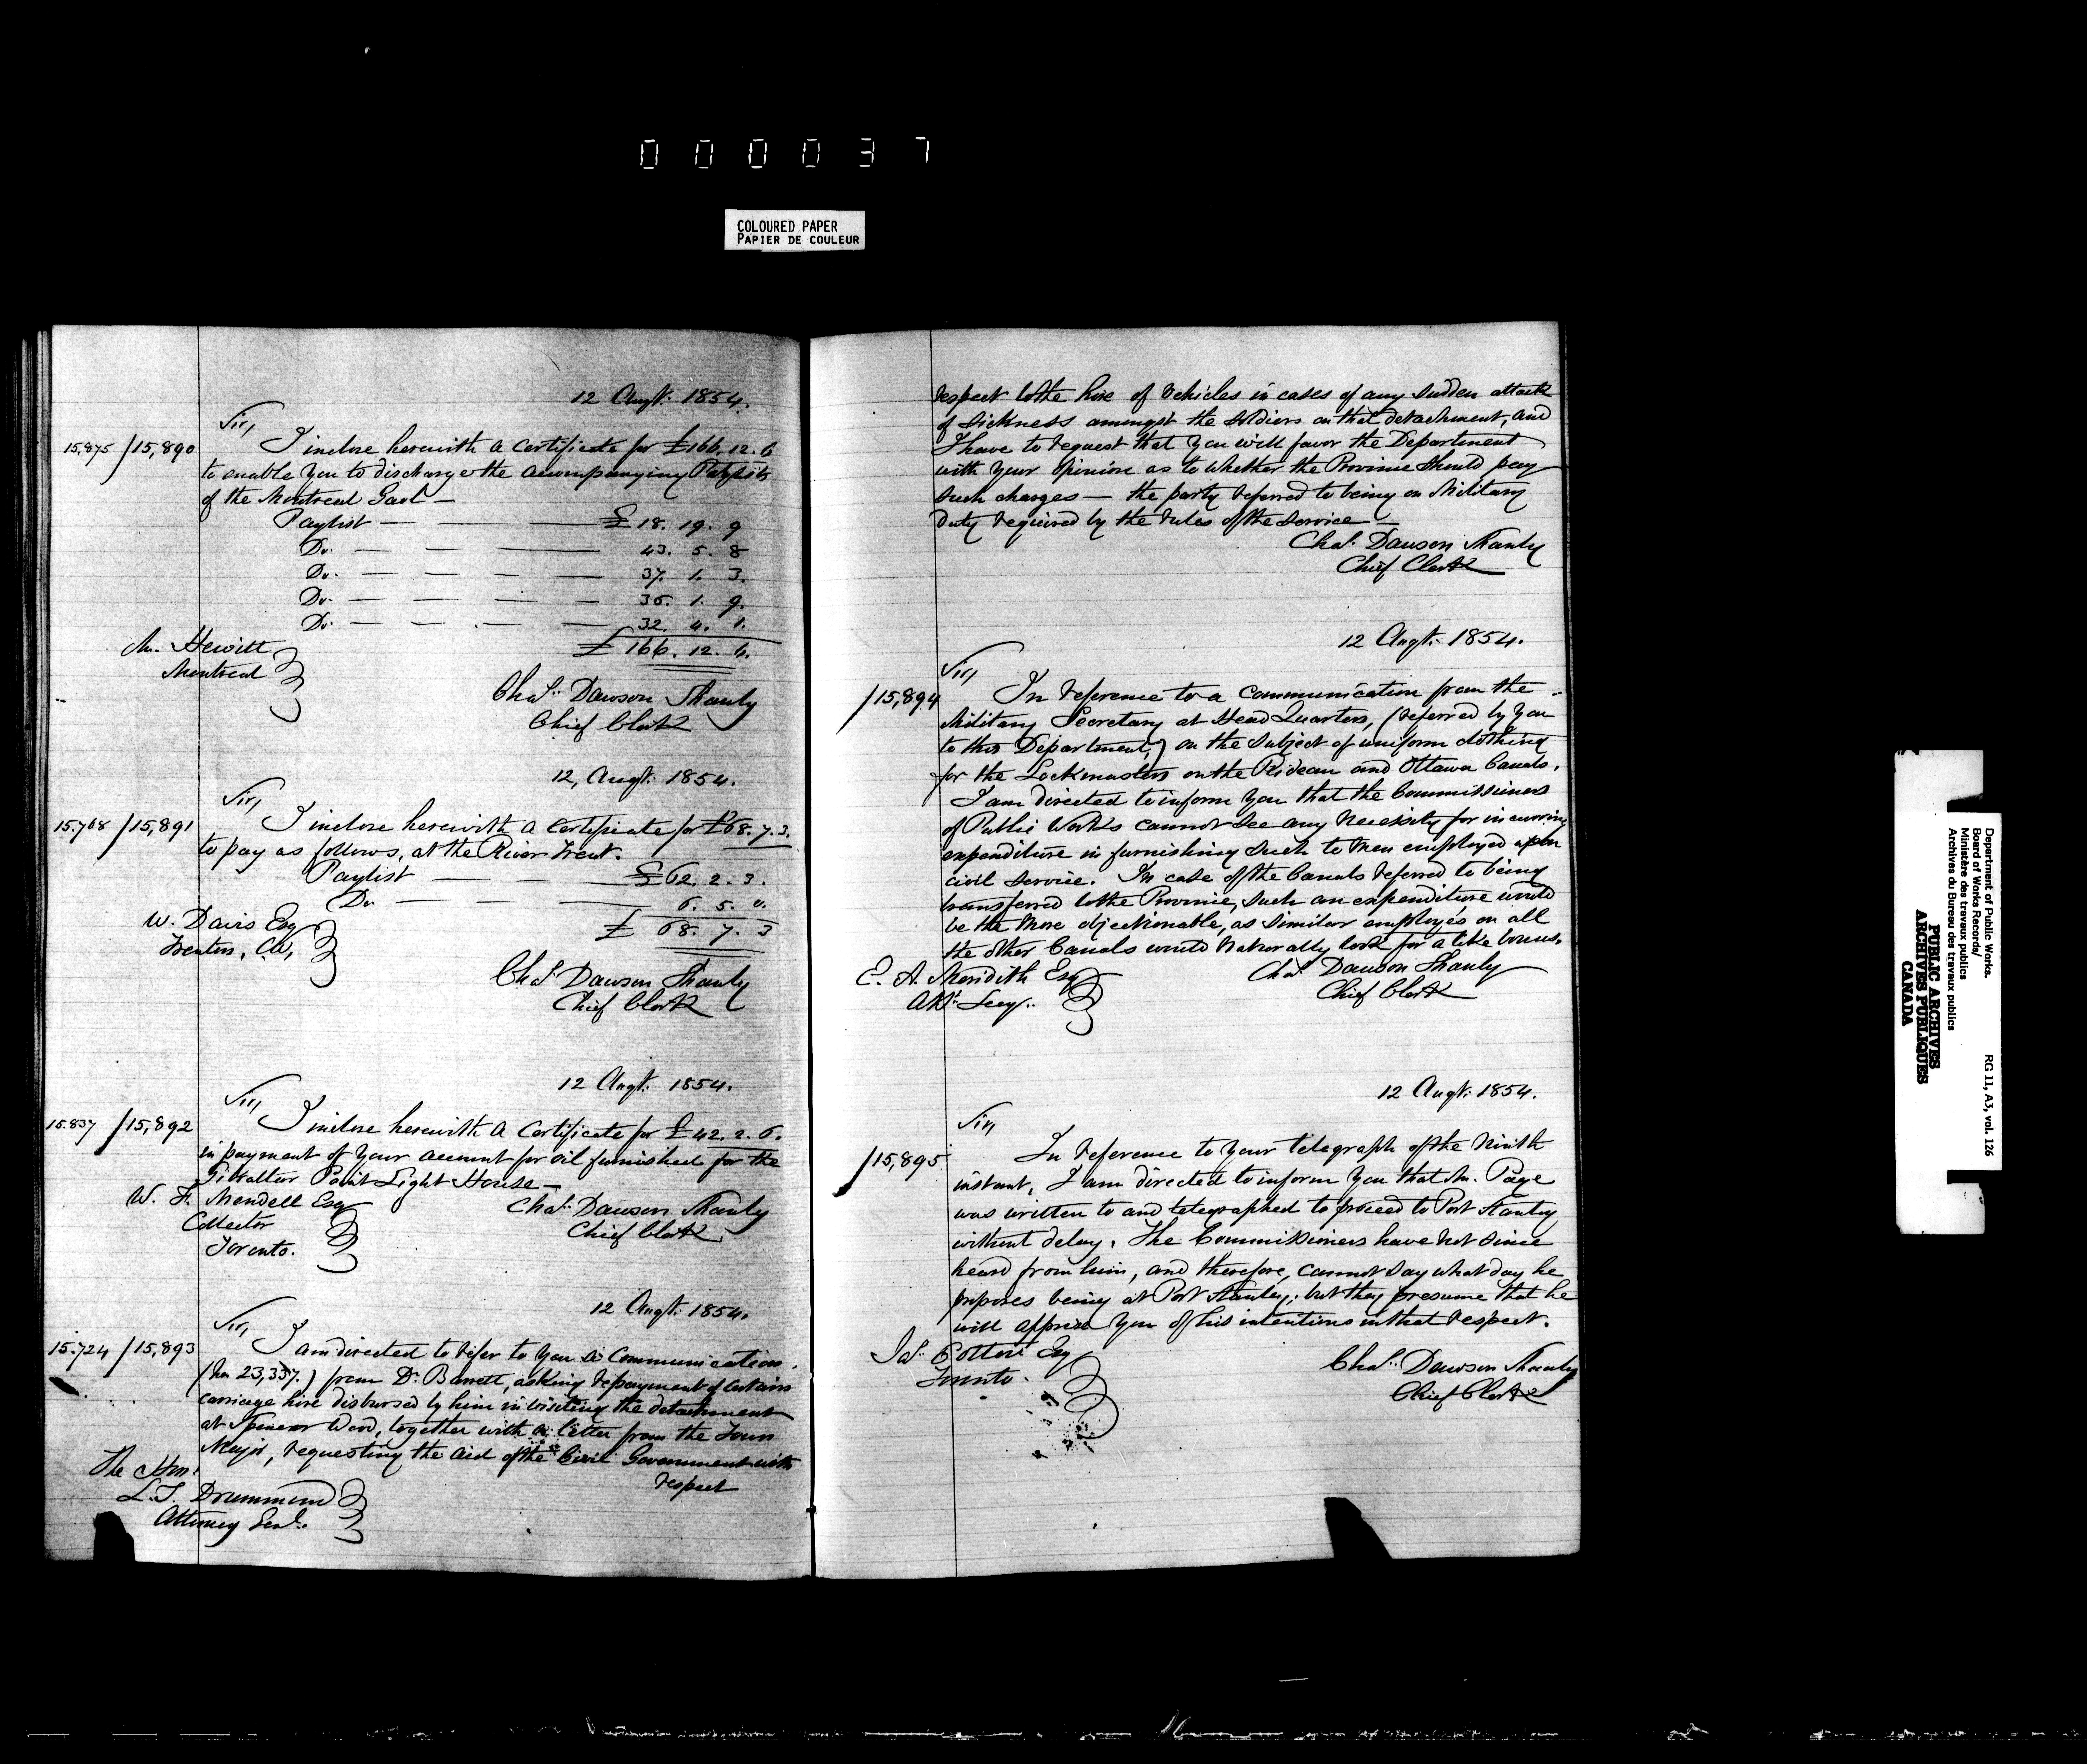 000037
COLOURED PAPER
PAPIER DE COULEUR
12 Augt. 1854.
Sir,
15,875 / 15,890
I inclose herewith a Certificate for £166.12.6
to enable you to discharge the accompanying Paylists
of the Montreal Gaol —
Paylist — — — £ 18. 19. 9
Do. — — — 43. 5. 8
Do. — — — 37. 1. 3.
Do. — — — 35. 1. 9.
Do. — — — 32. 4. 1.
£ 166. 12. 6.
Mr. Hewitt
Montreal
Chas. Dawson Shanly
Chief Clerk
12, Augt. 1854.
Sir,
15.768 / 15,891
I inclose herewith a Certificate for £68.7.3.
to pay as follows, at the River Trent.
Paylist — — £ 62. 2. 3.
Do. — — 6. 5. 0.
£ 68. 7. 3
W. Davis Esq
Trenton, CW,
Chas. Dawson Shanly
Chief Clerk
12 Augt. 1854.
Sir,
15.837 / 15,892
I inclose herewith a Certificate for £42. 2. 6.
in payment of your account for oil furnished for the
Gibralter Point Light House —
W. F. Mendell Esq
Collector
Toronto.
Chas. Dawson Shanly
Chief Clerk
12 Augt. 1854.
Sir,
15.724 / 15,893
I am directed to refer to you a Communication
(No 23,337.) from Dr. Barrett, asking repayment of certain
carriage hire disbursed by him in visiting the detachment
at Spencer Wood, together with a letter from the Town
Major, requesting the aid of the Civil Government with
respect
The Hon.
L. T. Drummond
Attorney Genl.
respect to the hire of vehicles in cases of any sudden attack
of sickness amongst the soldiers on that detachment, and
I have to request that you will favor the Department
with your opinion as to whether the Province should pay
such charges — the party referred to being on Military
duty required by the rules of the service —
Chas. Dawson Shanly
Chief Clerk
12 Augt. 1854.
Sir,
/ 15,894
In reference to a communication from the
Military Secretary at Head Quarters, (referred by you
to this Department,) on the subject of uniform clothing
for the Lockmasters on the Rideau and Ottawa Canals,
I am directed to inform you that the Commissioners
of Public Works cannot see any necessity for incurring
expenditure in furnishing such to men employed upon
civil service. In case of the Canals referred to being
transferred to the Province, such an expenditure would
be the more objectionable, as similar employés on all
the other Canals would naturally look for a like bonus.
E. A. Meredith Esq
Asst. Secy.
Chas. Dawson Shanly
Chief Clerk
12 Augt. 1854.
Sir,
/ 15,895
In reference to your telegraph of the ninth
instant, I am directed to inform you that Mr. Page
was written to and telegraphed to proceed to Port Stanley
without delay. The Commissioners have not since
heard from him, and therefore, cannot say what day he
proposes being at Port Stanley; but they presume that he
will apprise you of his intentions in that respect.
Jas. Cotton Esq
Toronto.
Chas. Dawson Shanly
Chief Clerk
Department of Public Works.
Board of Works Records/
Ministère des travaux publics
Archives du Bureau des travaux publics
RG 11, A3, vol. 126
PUBLIC ARCHIVES
ARCHIVES PUBLIQUES
CANADA